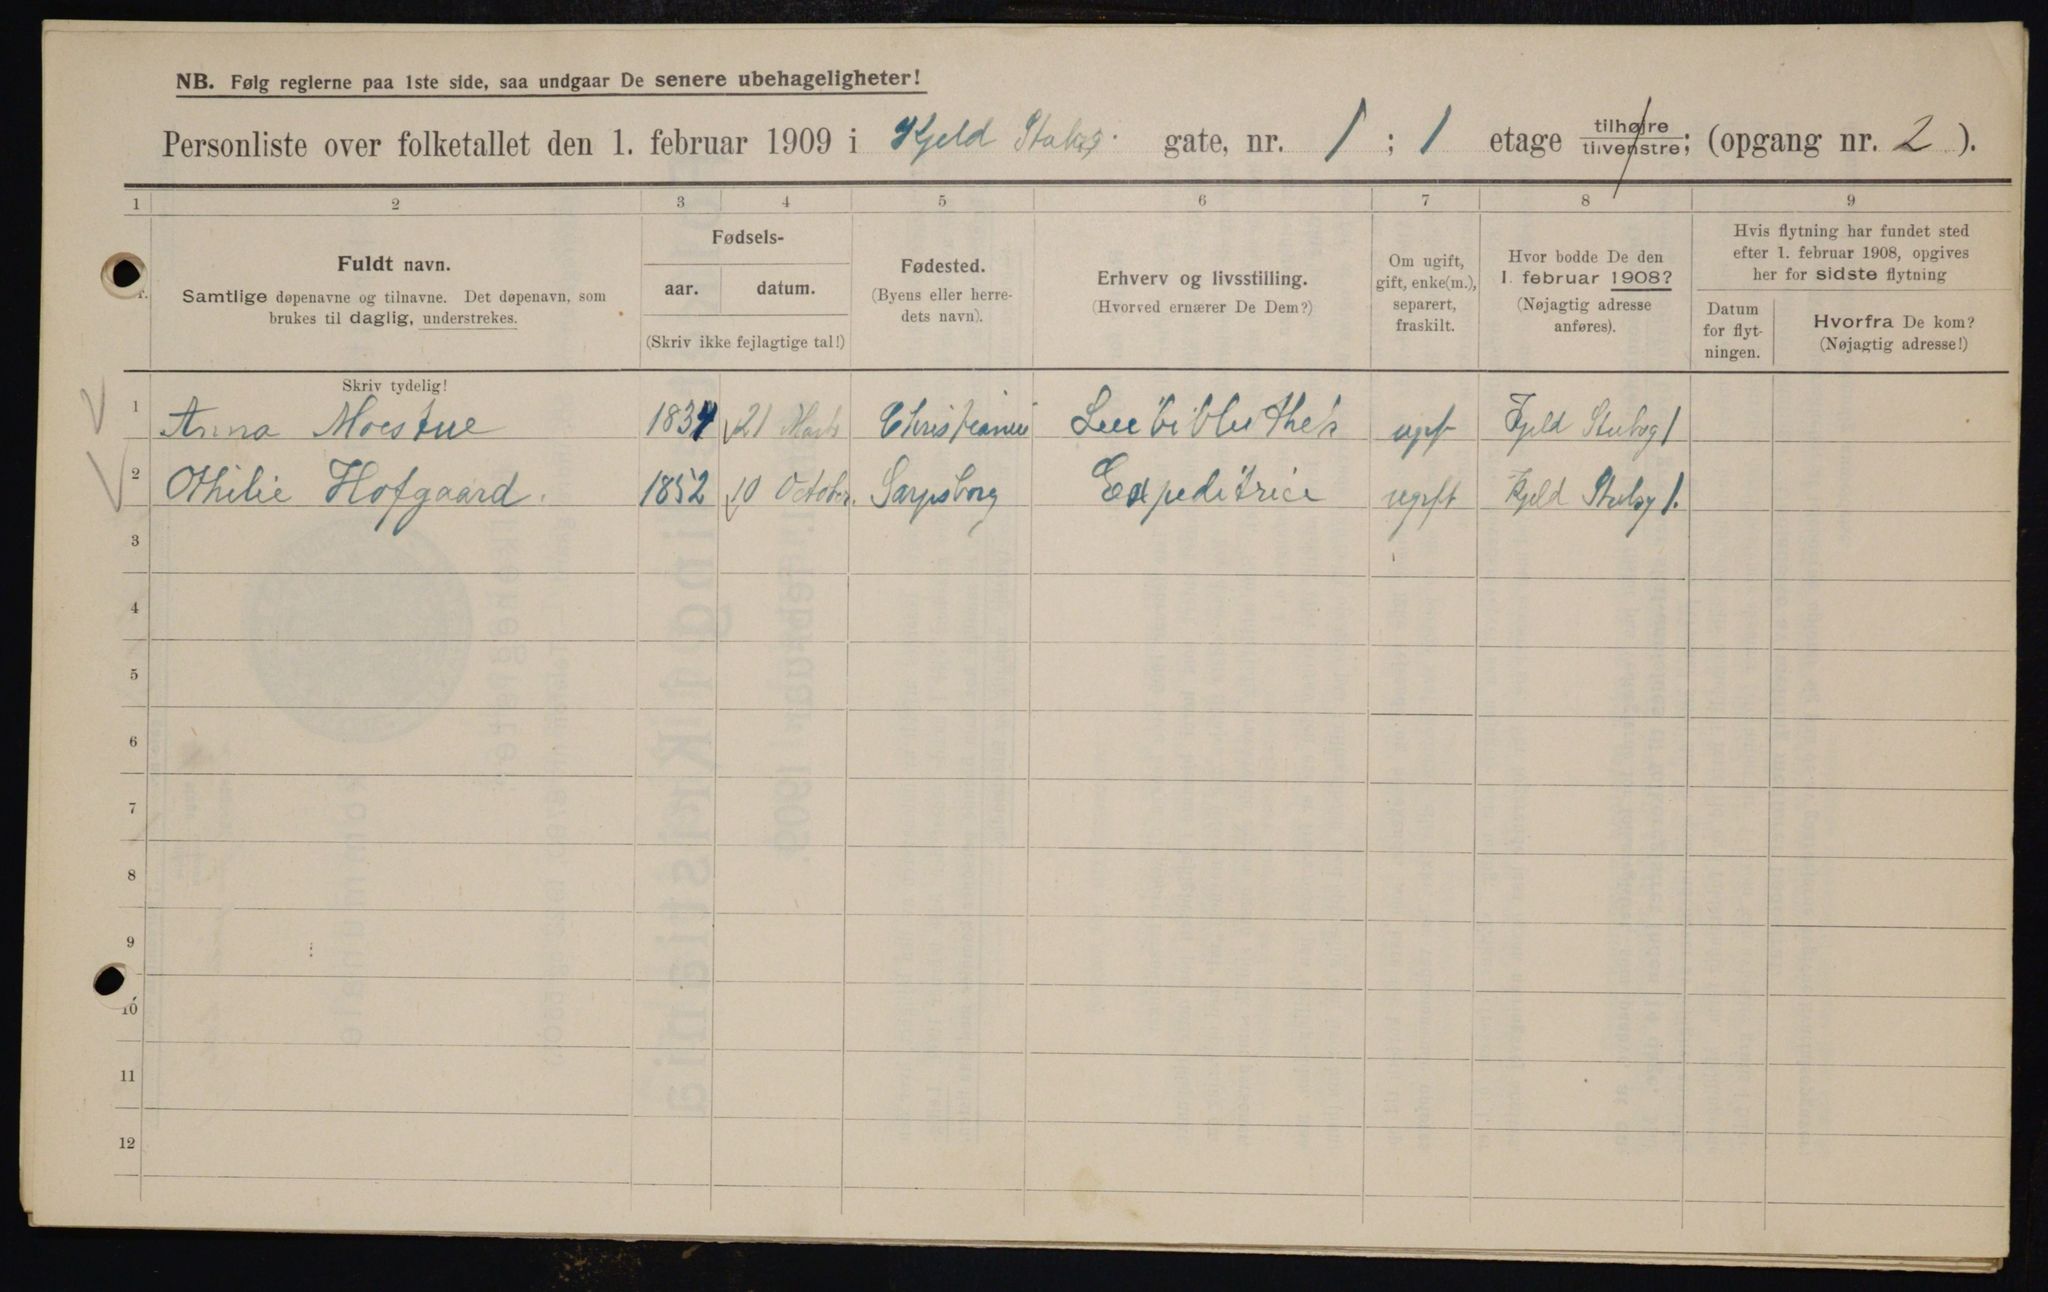 NB. Følg reglerne paa 1ste side, saa undgaar De senere ubehageligheter!
Personliste over folketallet den 1. februar 1909 i Kjeld Stubsg. gate, nr. 1 ; 1 etage tilhøjre tilvenstre; (opgang nr. 2 ).
1 2 3 4 5 6 7 8 9
Fuldt navn.
Samtlige døpenavne og tilnavne. Det døpenavn, som
brukes til daglig, understrekes.
Skriv tydelig!
Fødsels-
aar. datum.
(Skriv ikke fejlagtige tal!)
Fødested.
(Byens eller herre-
dets navn).
Erhverv og livsstilling.
(Hvorved ernærer De Dem?)
Om ugift,
gift, enke(m.),
separert,
fraskilt.
Hvor bodde De den
1. februar 1908?
(Nøjagtig adresse
anføres).
Hvis flytning har fundet sted
efter 1. februar 1908, opgives
her for sidste flytning
Datum
for flyt-
ningen.
Hvorfra De kom?
(Nøjagtig adresse!)
1 Anna Moestue 1834 21 Marts Christiania Leiebibliothek ugift Kjeld Stubsg 1
2 Othilie Hofgaard. 1852 10 October. Sarpsborg Expeditrice ugift Kjeld Stubsg 1.
3
4
5
6
7
8
9
10
11
12